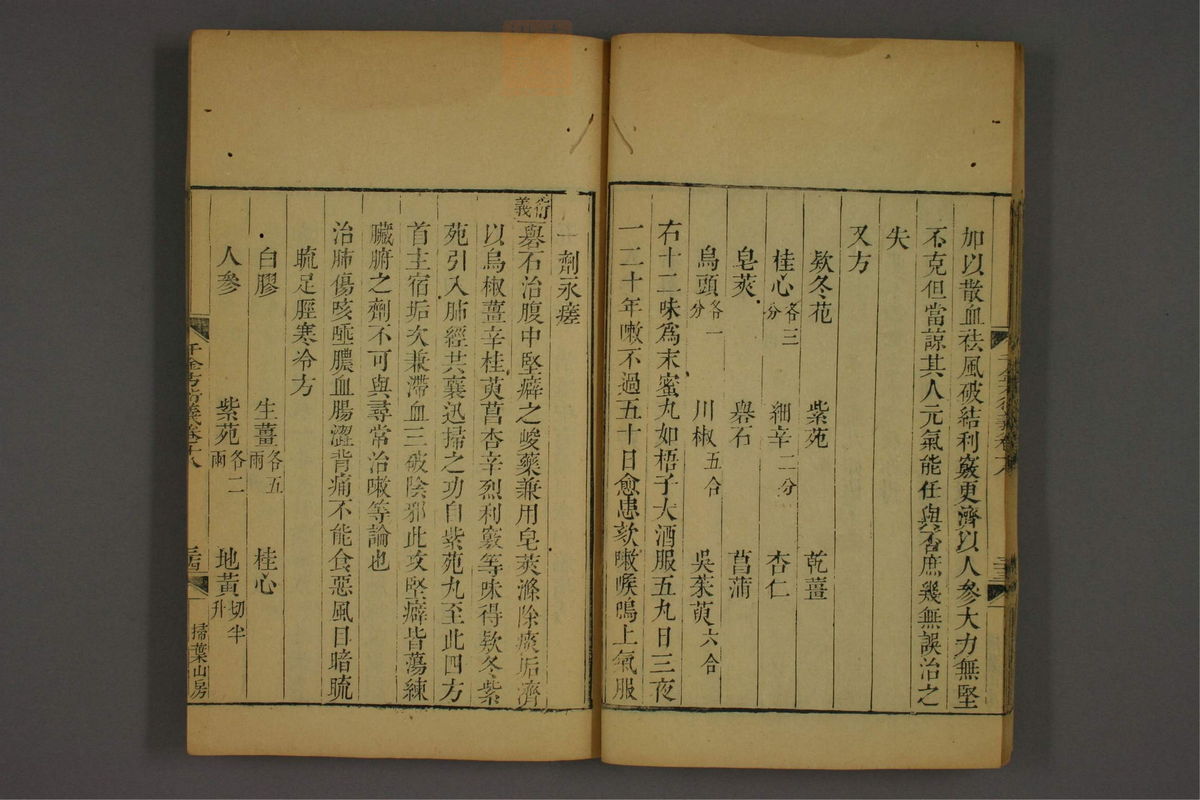 加以散血祛風破結利竅更濟以人參大力無堅
不克但當諒其人元氣能任與否庶幾無誤治之
失
又方
欵冬花 紫苑 乾薑
桂心各三分 細辛二分 杏仁
皂莢 礜石 菖蒲
烏頭各一分 川椒五合 吳茱萸六合
右十二味為末蜜丸如梧子大酒服五丸日三夜
一二十年嗽不過五十日愈患欬嗽喉鳴上氣服
一劑永瘥
衍義礜石治腹中堅癖之峻藥兼用皂莢滌除痰垢濟
以烏椒薑辛桂萸菖杏辛烈利竅等味得欵冬紫
苑引入肺經共襄迅掃之功自紫苑丸至此四方
首主宿垢次兼滯血三破陰邪此攻堅癖皆蕩練
臟腑之劑不可與尋常治嗽等論也
治肺傷咳唾膿血腸澀背痛不能食惡風目暗䀮
䀮足脛寒冷方
白膠 生薑各五兩 桂心
人參 紫苑各二兩 地黃切半升
千金方衍義卷十八
掃葉山房